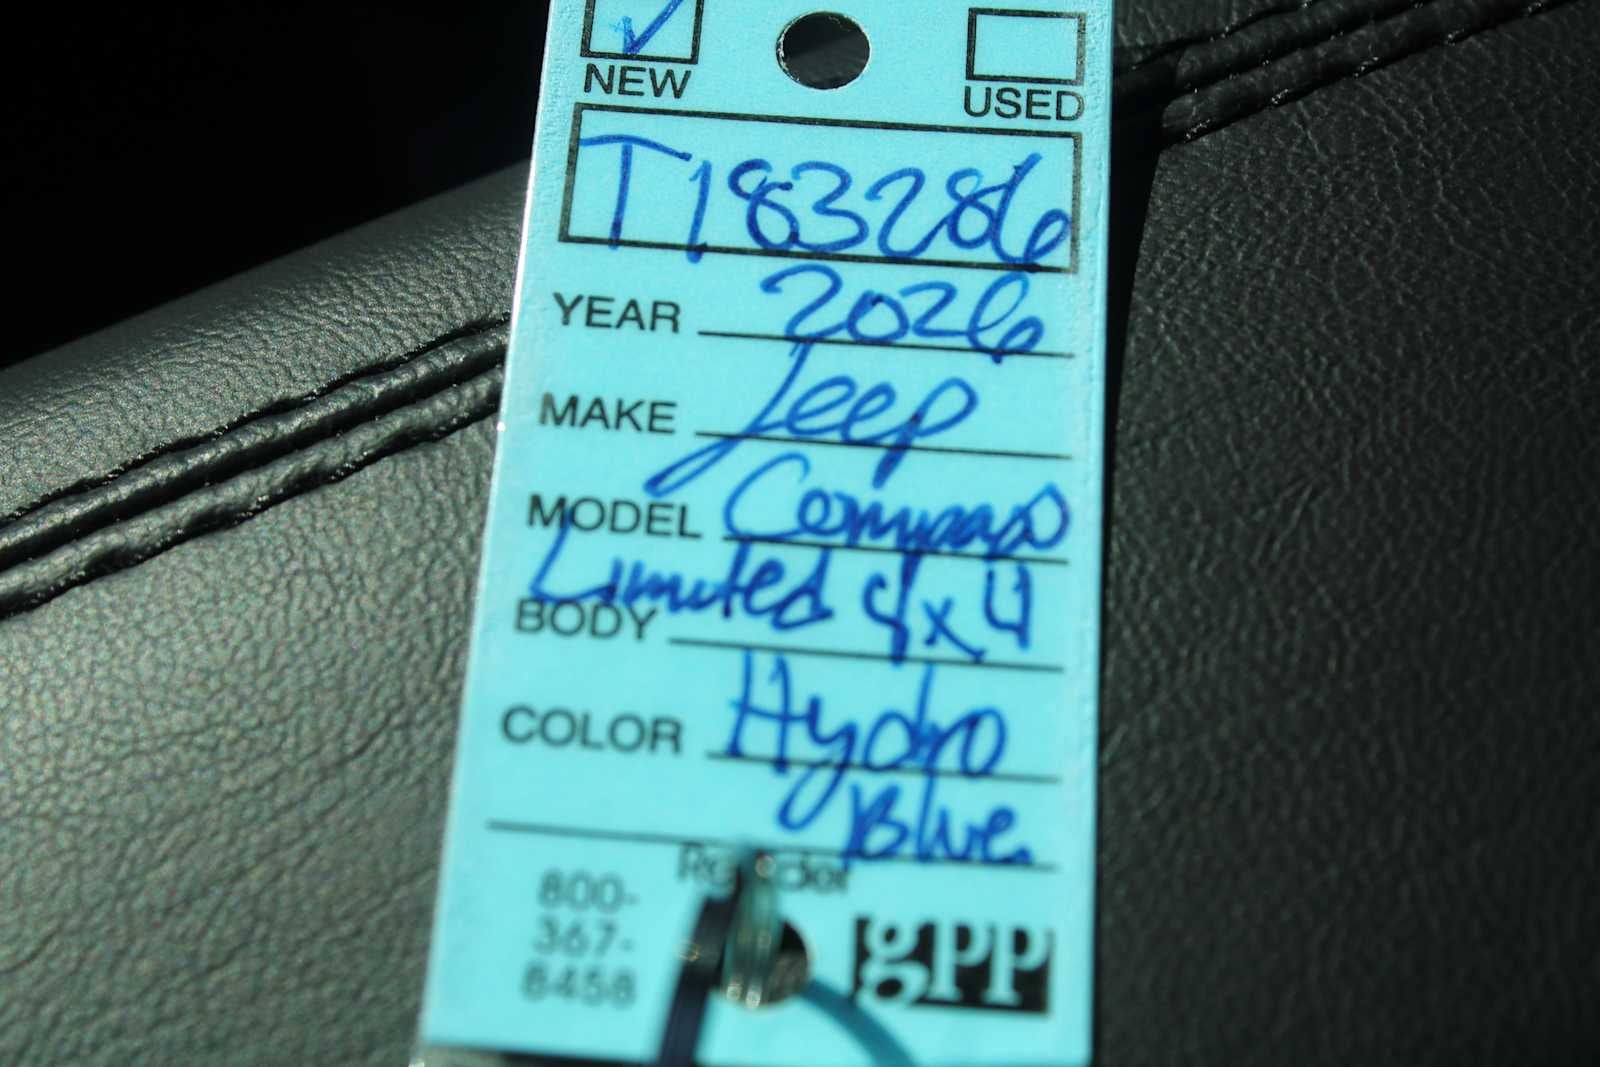 NEW USED
T183286
YEAR 2026
MAKE Jeep
MODEL Compass
Limited 4x4
BODY
COLOR Hydro
Blue
Reorder
800-
367-
8458
gPP